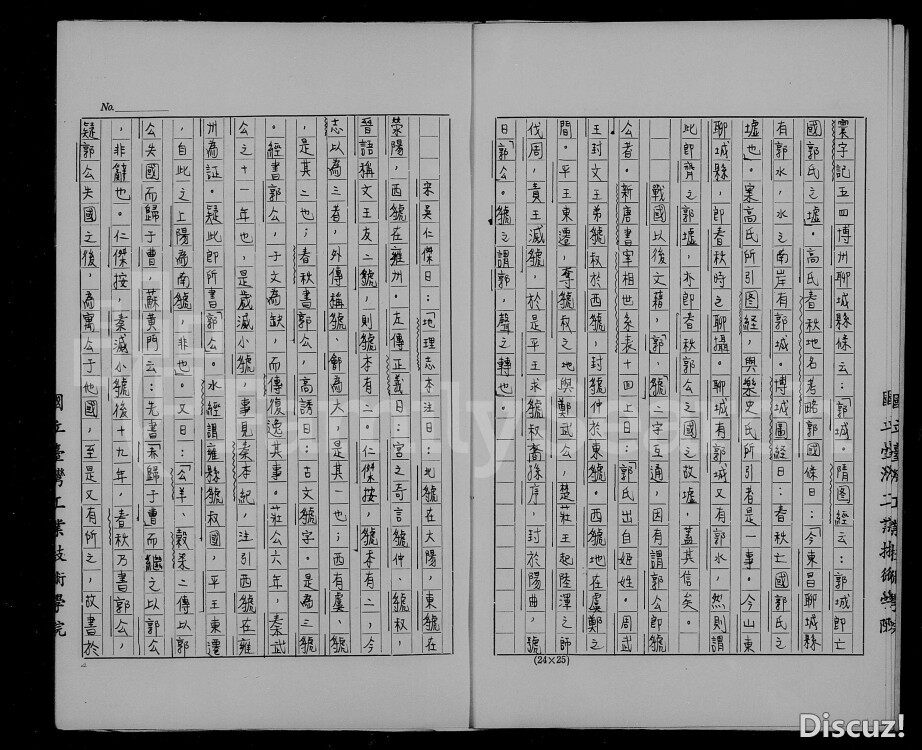 寰宇記五四博州聊城縣條云：「郭城。隋圖經云：郭城即亡
國郭氏之墟。高氏春秋地名考略郭國條曰：「今東昌聊城縣
有郭水，水之南岸有郭城。博城圖經曰：春秋亡國郭氏之
墟也。案高氏所引圖經，與樂史氏所引者是一事。今山東
聊城縣，即春秋時之聊攝。聊城有郭城又有郭水，然則謂
此即齊之郭墟，亦即春秋郭公之國之故墟，蓋其信矣。
戰國以後文籍，「郭」、「號」之字互通，因有謂郭公即號
公者。新唐書宰相世系表十四上曰：「郭氏出自姬姓。周武
王封文王弟號叔於西號，封號仲於東號。西號地在虞鄭之
間。平王東遷，奪號叔之地與鄭武公，楚莊王起陸渾之師
伐周，責王滅號，於是平王求號叔裔孫序，封於陽曲，號
曰「郭公。號之謂郭，聲之轉也。
宋吳仁傑曰：「地理志本注曰：北號在大陽，東號在
滎陽，西號在雍州。左傳正義曰：宮之奇言號仲、號叔，
晉語稱文王友二號，則號本有二。仁傑按，號李有二，今
志以為三者，外傳稱號、鄶為大，是其一也；西有虞、號
，是其二也；春秋書郭公，高誘曰：古文號字。是為三號
。經書郭公，于文為缺，而傳復逸其事。莊公六年，秦武
公之十一年也，是歲滅小號，事見秦本紀，注引西號在雍
州為証。疑此即所書「郭公」。水經謂雍縣號叔國，平王東遷
，自此之上陽為南號，非也。又曰：「公羊、穀梁二傳以郭
公失國而歸于曹，蘇黃門云：先書「赤歸于曹而繼之以郭公
，非辭也。仁傑按，秦滅小號後十九年，春秋乃書郭公，
疑郭公失國之後，為寓公于他國，至是又有所之，故書於
No.
(24×25)
國立臺灣工業技術學院
Discuz!